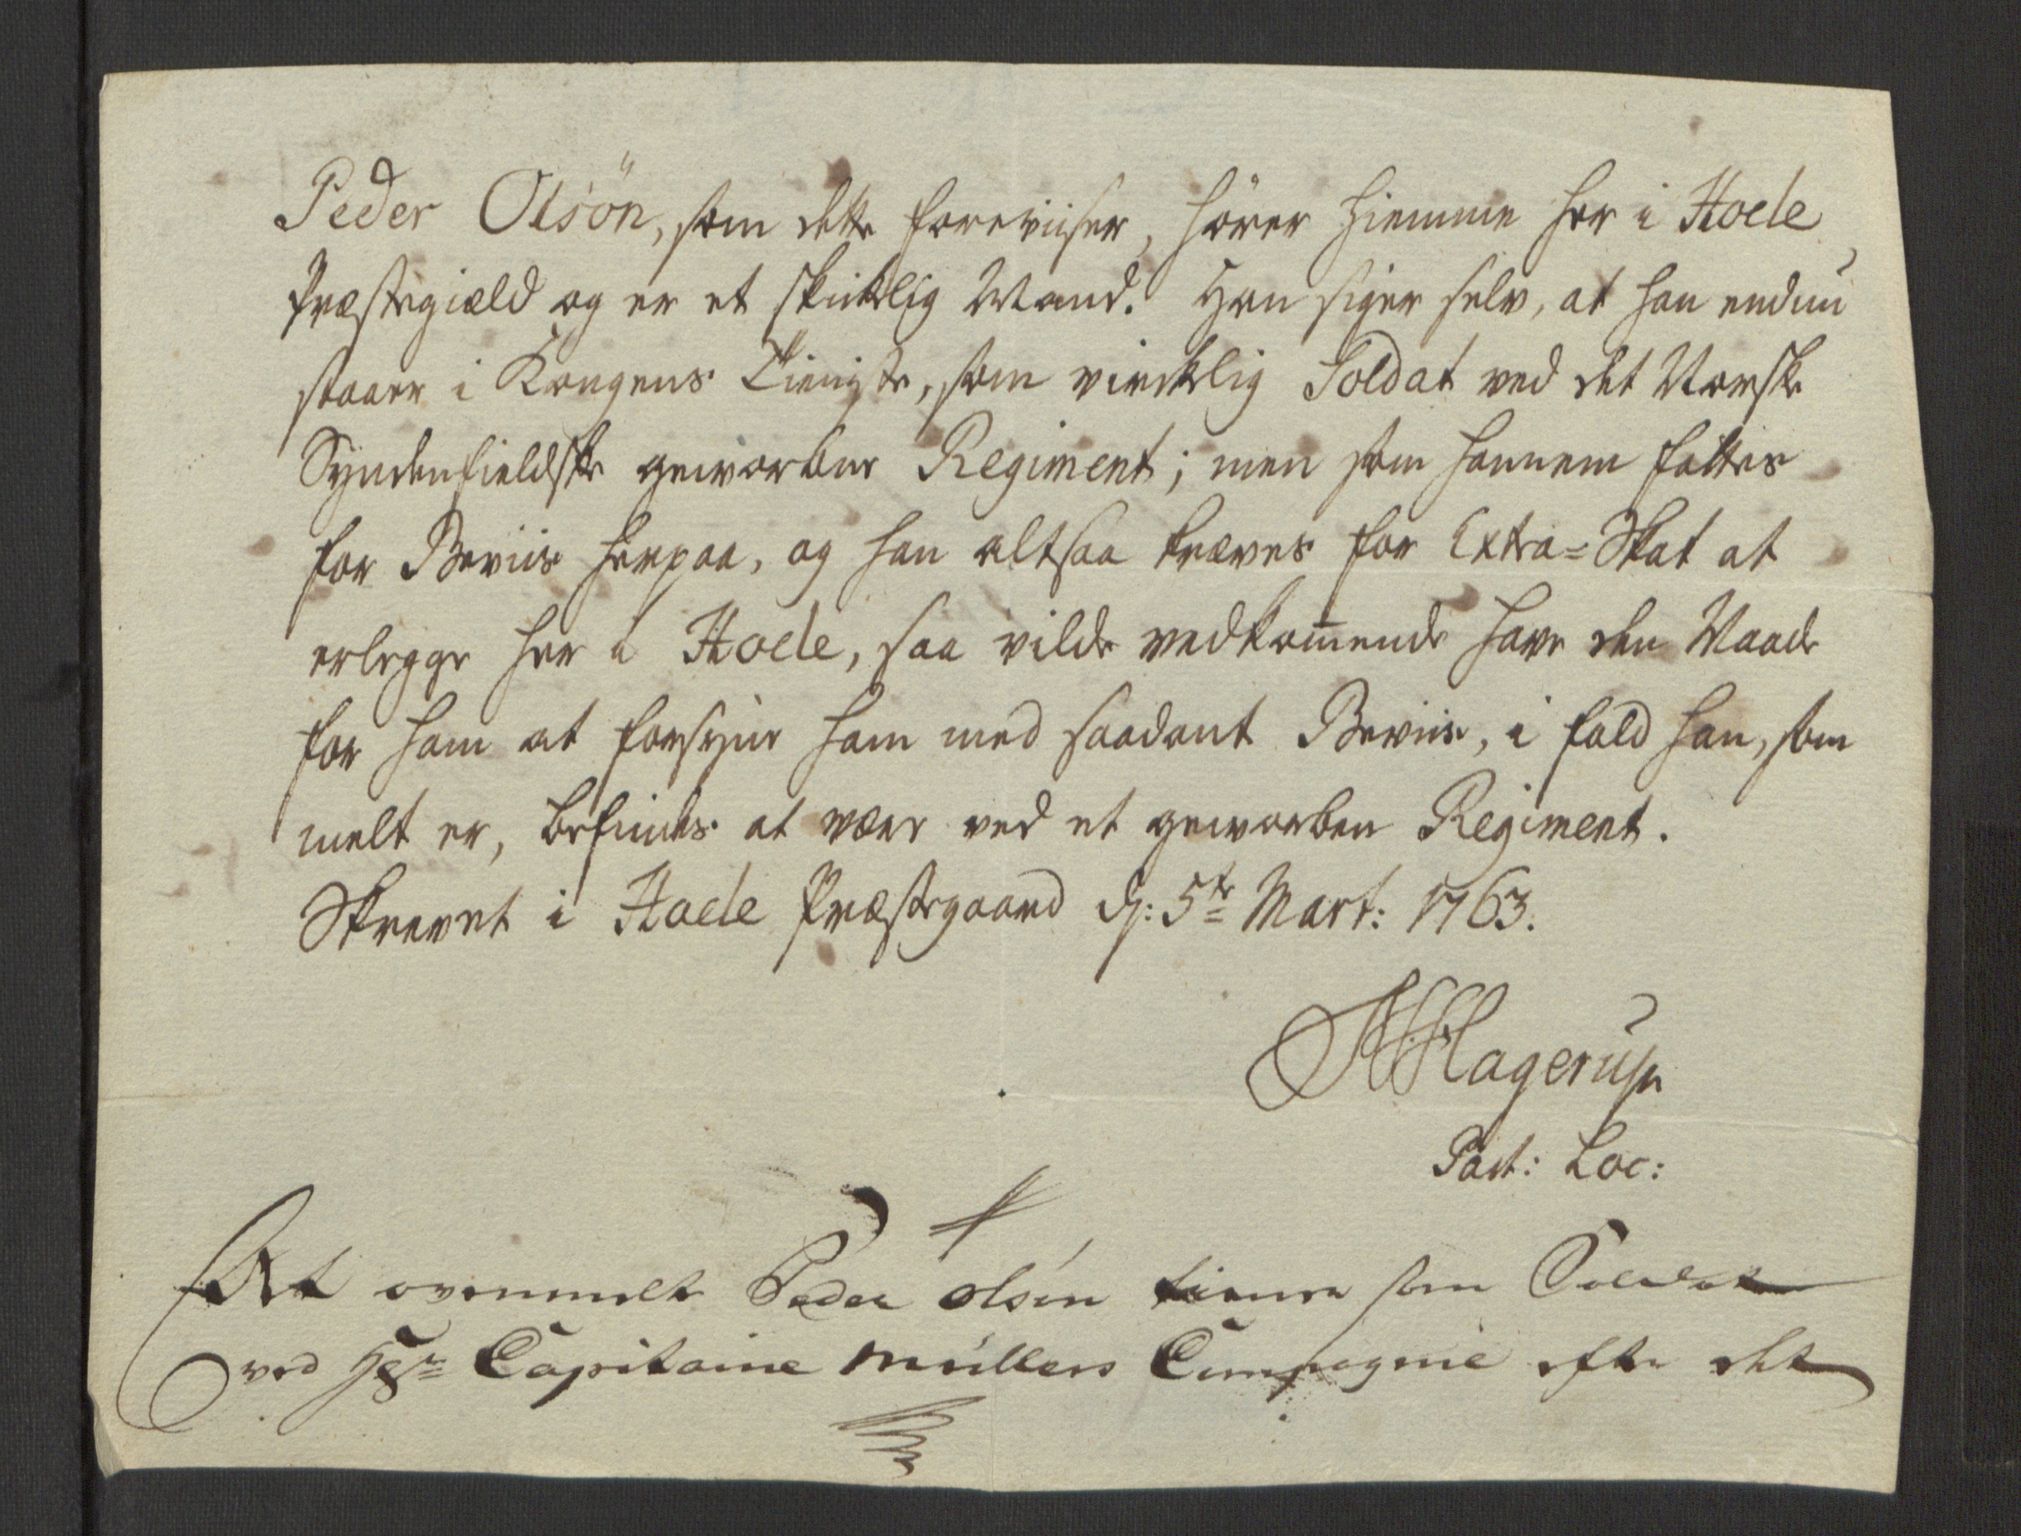 Peder Olsön, som dette foreviiser, hörer hiemme her i Hoele
Præstegiæld og er et skicklig Mand. Han siger selv, at han endnu
staaer i Kongens Tieniste, som virckelig Soldat ved det Norske
Syndenfieldske geworbne Regiment; men som hannem fattes
for Beviis herpaa, og han altsaa kræves for Extra=Skat at
erlegge her i Hoele, saa vilde vedkom̄ende have den Naade
for ham at forsyne ham med saadant Beviis, i fald han, som
melt er, befindes at være ved et geworben Regiment.
Skrevet i Hoele Præstegaard d: 5te Mart: 1763.
HHagerup
Past: Loc:
At ovenmelte Peder Olsen tiener som Soldat
ved Hr Capitaine Müllers Compagnie efter det